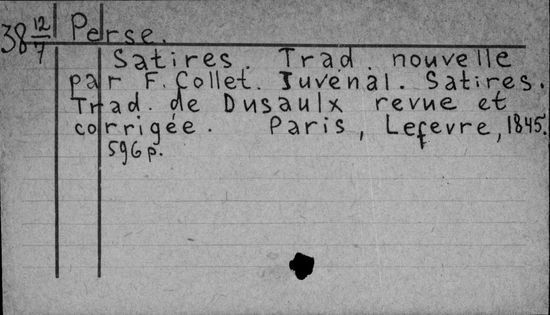 38 12/7 Perse.
Satires. Trad. nouvelle
par F. Collet. Juvénal. Satires.
Trad. de Dusaulx revue et
corrigée. Paris, Lefevre, 1845.
596 p.